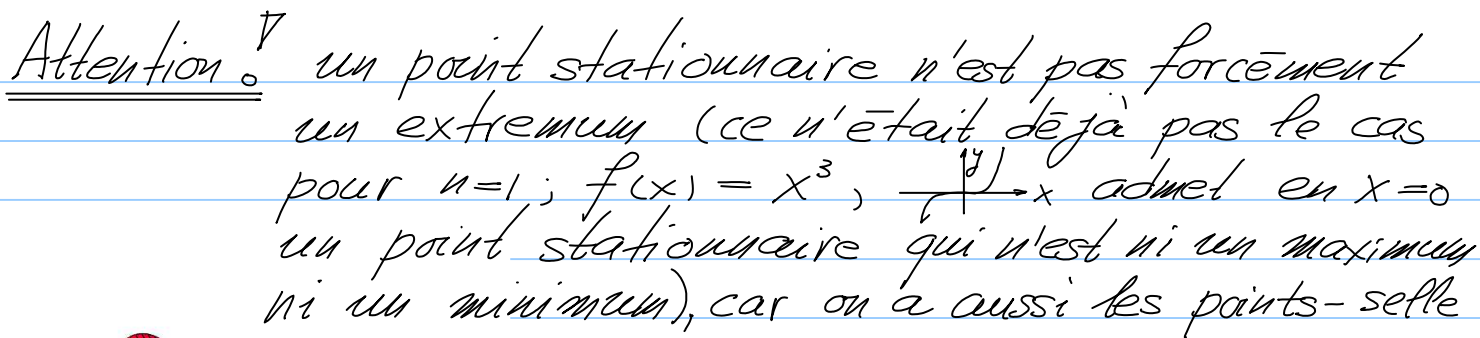 Attention! un point stationnaire n'est pas forcément
un extremum (ce n'était déjà pas le cas
pour n=1; f(x) = x³, y x admet en x=0
un point stationnaire qui n'est ni un maximum
ni un minimum), car on a aussi les points-selle